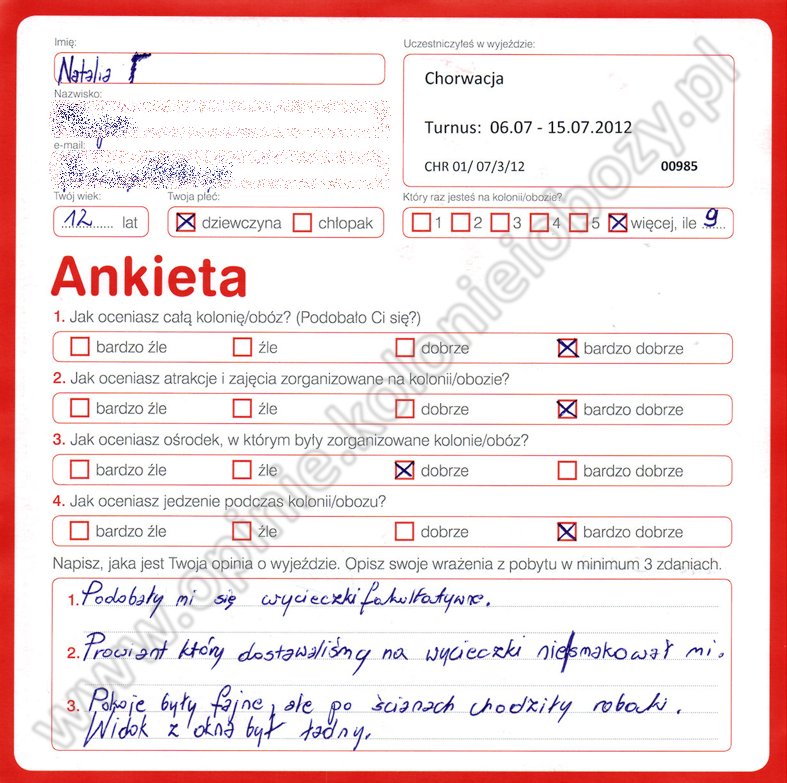 Imię:
Natalia T
Nazwisko:
e-mail:
Twój wiek:
12 lat
Twoja płeć:
dziewczyna chłopak
Uczestniczyłeś w wyjeździe:
Chorwacja
Turnus: 06.07 - 15.07.2012
CHR 01/ 07/3/12 00985
Który raz jesteś na kolonii/obozie?
1 2 3 4 5 więcej, ile 9
Ankieta
1. Jak oceniasz całą kolonię/obóz? (Podobało Ci się?)
bardzo źle źle dobrze bardzo dobrze
2. Jak oceniasz atrakcje i zajęcia zorganizowane na kolonii/obozie?
bardzo źle źle dobrze bardzo dobrze
3. Jak oceniasz ośrodek, w którym były zorganizowane kolonie/obóz?
bardzo źle źle dobrze bardzo dobrze
4. Jak oceniasz jedzenie podczas kolonii/obozu?
bardzo źle źle dobrze bardzo dobrze
Napisz, jaka jest Twoja opinia o wyjeździe. Opisz swoje wrażenia z pobytu w minimum 3 zdaniach.
1. Podobały mi się wycieczki fakultatywne.
2. Prowiant który dostawaliśmy na wycieczki nie smakował mi.
3. Pokoje były fajne, ale po ścianach chodziły robaki.
Widok z okna był ładny.
www.opinie.kolonieiobozy.pl